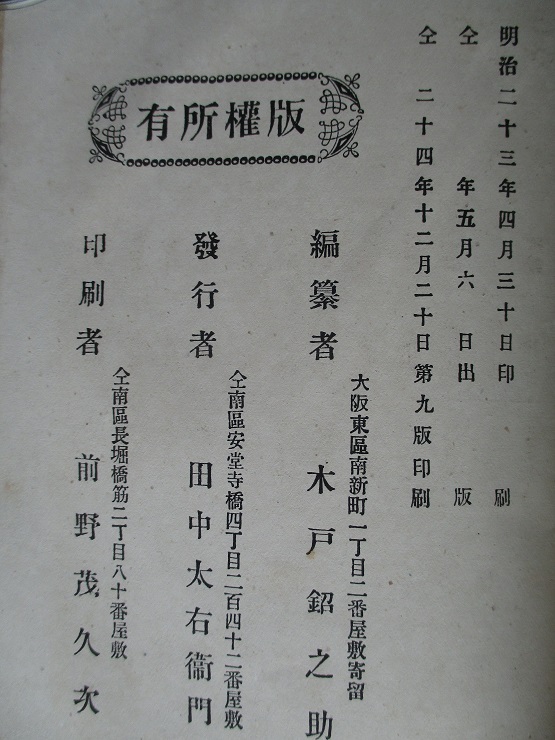 明治二十三年四月三十日印刷
仝年五月六日出版
仝二十四年十二月二十日第九版印刷
版權所有
編纂者
大阪東區南新町一丁目二番屋敷寄留
木戸鉊之助
發行者
仝南區安堂寺橋四丁目二百四十二番屋敷
田中太右衞門
印刷者
仝南區長堀橋筋二丁目八十番屋敷
前野茂久次